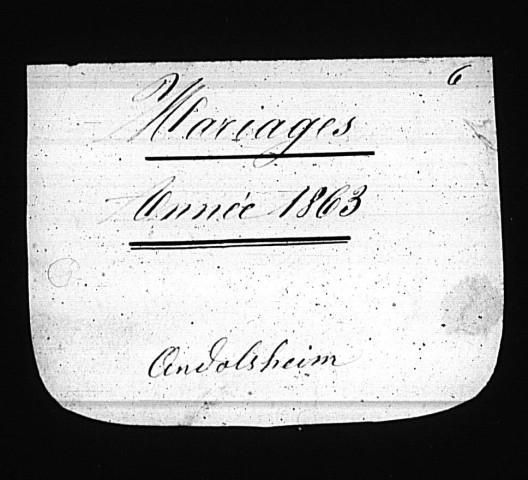 6
Mariages
Année 1863
Andolsheim